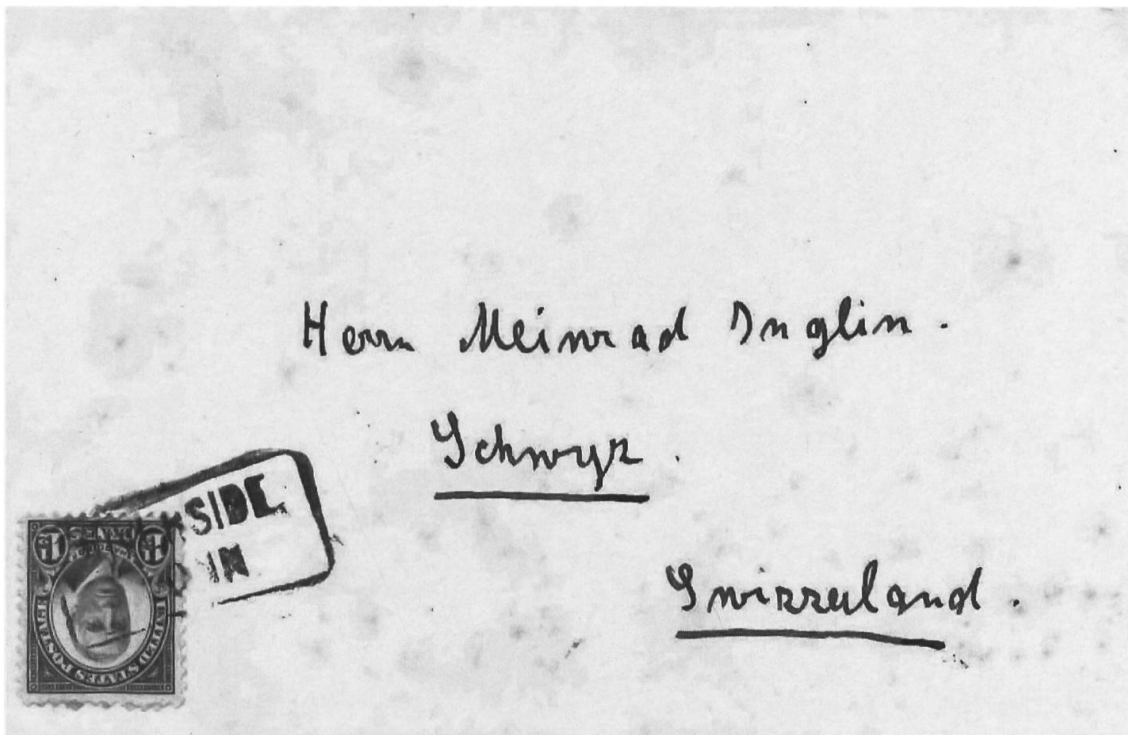 Herrn Meinrad Inglin.
Schwyz.
Switzerland.
SIDE
IN
UNITED STATES POSTAGE